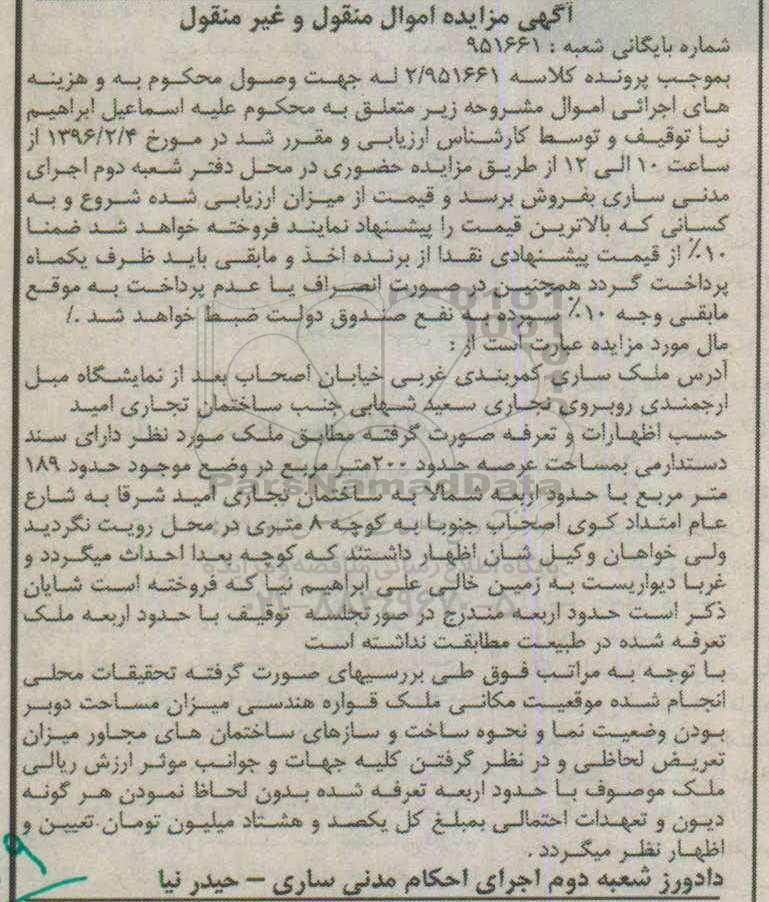 آگهی مزایده اموال منقول و غیر منقول
شماره بایگانی شعبه : ۹۵۱۶۶۱
بموجب پرونده کلاسه ۲/۹۵۱۶۶۱ له جهت وصول محکوم به و هزینه
های اجرائی اموال مشروحه زیر متعلق به محکوم علیه اسماعیل ابراهیم
نیا توقیف و توسط کارشناس ارزیابی و مقرر شد در مورخ ۱۳۹۶/۲/۴ از
ساعت ۱۰ الی ۱۲ از طریق مزایده حضوری در محل دفتر شعبه دوم اجرای
مدنی ساری بفروش برسد و قیمت از میزان ارزیابی شده شروع و به
کسانی که بالاترین قیمت را پیشنهاد نمایند فروخته خواهد شد ضمنا
۱۰٪ از قیمت پیشنهادی نقدا از برنده اخذ و مابقی باید ظرف یکماه
پرداخت گردد همچنین در صورت انصراف یا عدم پرداخت به موقع
مابقی وجه ۱۰٪ سپرده به نفع صندوق دولت ضبط خواهد شد ./
مال مورد مزایده عبارت است از :
آدرس ملک ساری کمربندی غربی خیابان اصحاب بعد از نمایشگاه مبل
ارجمندی روبروی تجاری سعید شهابی جنب ساختمان تجاری امید
حسب اظهارات و تعرفه صورت گرفته مطابق ملک مورد نظر دارای سند
دستدارمی بمساحت عرصه حدود ۲۰۰متر مربع در وضع موجود حدود ۱۸۹
متر مربع با حدود اربعه شمالا به ساختمان تجاری امید شرقا به شارع
عام امتداد کوی اصحاب جنوبا به کوچه ۸ متری در محل رویت نگردید
ولی خواهان وکیل شان اظهار داشتند که کوچه بعدا احداث میگردد و
غربا دیواریست به زمین خالی علی ابراهیم نیا که فروخته است شایان
ذکر است حدود اربعه مندرج در صورتجلسه توقیف با حدود اربعه ملک
تعرفه شده در طبیعت مطابقت نداشته است
با توجه به مراتب فوق طی بررسیهای صورت گرفته تحقیقات محلی
انجام شده موقعیت مکانی ملک قواره هندسی میزان مساحت دوبر
بودن وضعیت نما و نحوه ساخت و سازهای ساختمان های مجاور میزان
تعریض لحاظی و در نظر گرفتن کلیه جهات و جوانب موثر ارزش ریالی
ملک موصوف با حدود اربعه تعرفه شده بدون لحاظ نمودن هر گونه
دیون و تعهدات احتمالی بمبلغ کل یکصد و هشتاد میلیون تومان تعیین و
اظهار نظر میگردد .
دادورز شعبه دوم اجرای احکام مدنی ساری – حیدر نیا
ParsNamadData